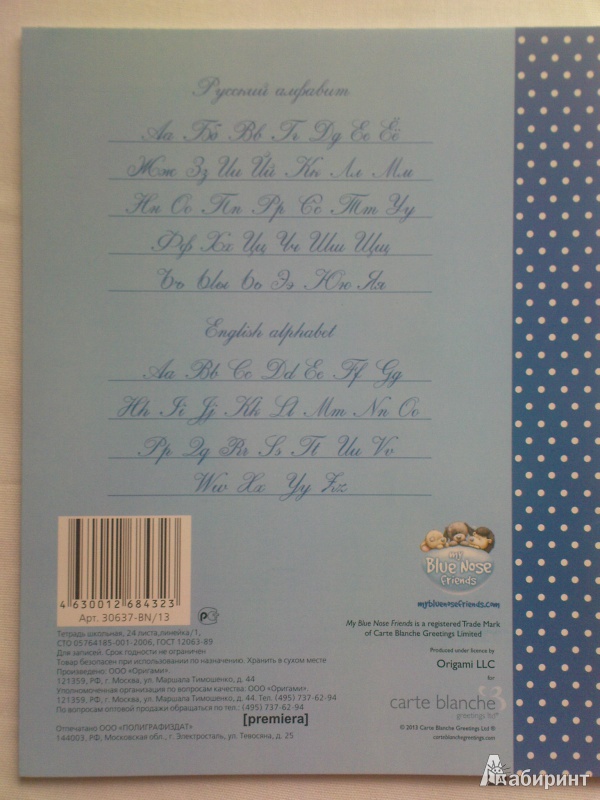 Русский алфавит
Аа Бб Вв Гг Дд Ее Ёё
Жж Зз Ии Йй Кк Лл Мм
Нн Оо Пп Рр Сс Тт Уу
Фф Хх Цц Чч Шш Щщ
Ъъ Ыы Ьь Ээ Юю Яя
English alphabet
Aa Bb Cc Dd Ee Ff Gg
Hh Ii Jj Kk Ll Mm Nn Oo
Pp Qq Rr Ss Tt Uu Vv
Ww Xx Yy Zz
4 630012 684323
Арт. 30637-BN/13
Тетрадь школьная, 24 листа,линейка/1,
СТО 05764185-001-2006, ГОСТ 12063-89
Для записей. Срок годности не ограничен
Товар безопасен при использовании по назначению. Хранить в сухом месте
Произведено: ООО «Оригами».
121359, РФ, г. Москва, ул. Маршала Тимошенко, д. 44
Уполномоченная организация по вопросам качества: ООО «Оригами»
121359, РФ, г. Москва, ул. Маршала Тимошенко, д. 44. Тел. (495) 737-62-94
По вопросам оптовой продажи обращаться по тел.: (495) 737-62-94
[premiera]
Отпечатано ООО «ПОЛИГРАФИЗДАТ»
144003, РФ, Московская обл., г. Электросталь, ул. Тевосяна, д. 25
my
Blue Nose
friends
mybluenosefriends.com
My Blue Nose Friends is a registered Trade Mark
of Carte Blanche Greetings Limited
Produced under licence by
Origami LLC
for
carte blanche
greetings ltd®
© 2013 Carte Blanche Greetings Ltd ®
carteblanchegreetings.com
Лабиринт